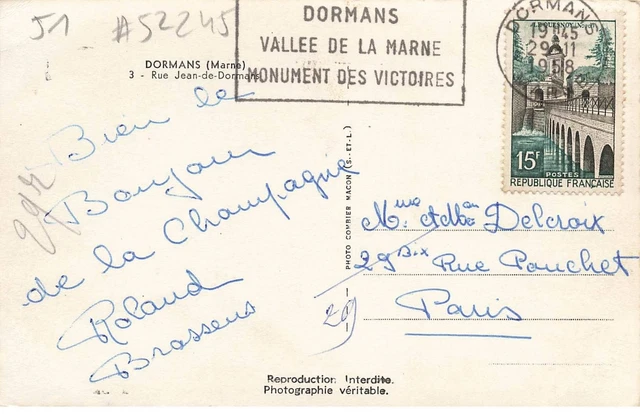 51 #52245
DORMANS
VALLEE DE LA MARNE
MONUMENT DES VICTOIRES
DORMANS
19H45
1958
LE QUESNOY
15F
POSTES
REPUBLIQUE FRANÇAISE
DORMANS (Marne)
3 - Rue Jean-de-Dormans
Bien le
Bonjour
de la Champagne
Roland
Brassens
PHOTO COMBIER MACON (S.-ET-L.)
Delcroix
29 Bix Rue Pouchet
Paris
Reproduction Interdite.
Photographie véritable.